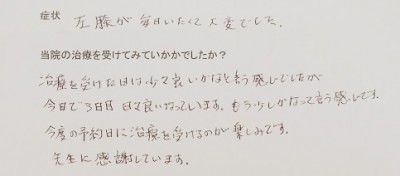 症状 左膝が毎日いたくて大変でした。
当院の治療を受けてみていかかでしたか?
治療を受けた日は少々良いかなと言う感じでしたが
今日で3日目 日々良いなっています。もう少しかなって言う感じです。
今度の予約日に治療を受けるのが楽しみです。
先生に感謝しています。